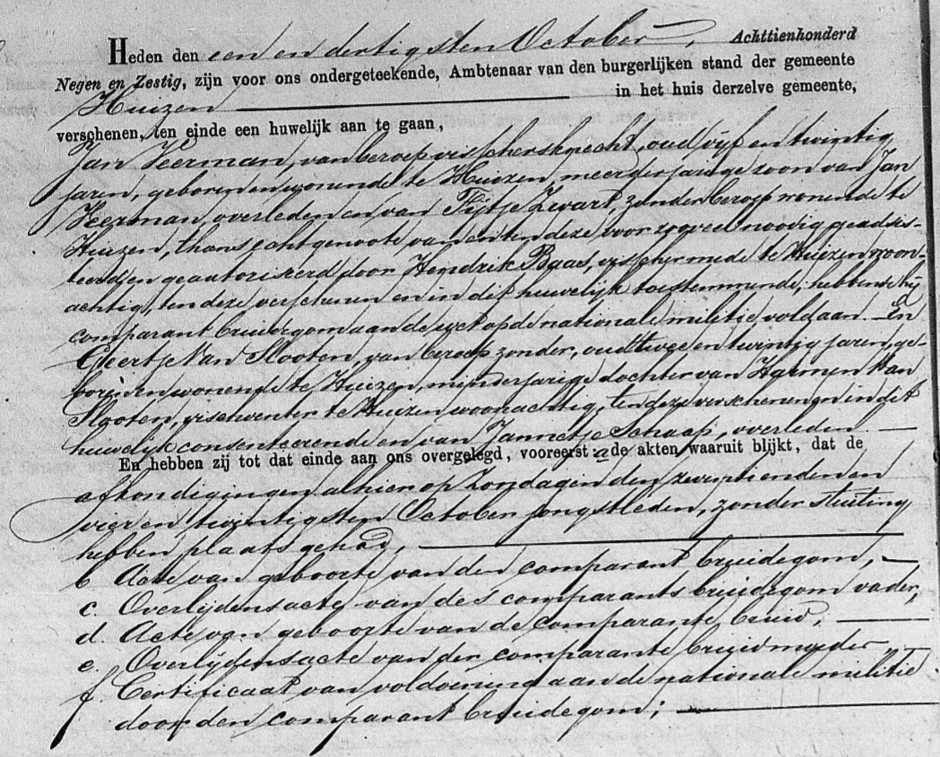 Heden den een en dertigsten October, Achttienhonderd
Negen en Zestig, zijn voor ons ondergeteekende, Ambtenaar van den burgerlijken stand der gemeente
Huizen in het huis derzelve gemeente,
verschenen, ten einde een huwelijk aan te gaan,
Jan Veerman, van beroep visschersknecht, oud vijf en twintig
jaren, geboren en wonende te Huizen, meerderjarige zoon van Jan
Veerman, overleden en van Tijtje Zwart, zonder beroep wonende te
Huizen, thans echtgenoote van en ten deze voor zooveel noodig geadsis-
teerd en geautoriseerd door Hendrik Baas, visscher mede te Huizen woon-
achtig, ten deze verschenen en in dit huwelijk toestemmende; hebbende hij
comparant bruidegom aan de wet op de nationale militie voldaan. En
Geertje Van Slooten, van beroep zonder, oud twee en twintig jaren, ge-
boren en wonende te Huizen, minderjarige dochter van Harmen Van
Slooten, vischventer te Huizen woonachtig, ten deze verschenen en in dit
huwelijk consenteerende en van Jannetje Schaap, overleden
En hebben zij tot dat einde aan ons overgelegd, vooreerst a de akten waaruit blijkt, dat de
afkondigingen alhier op Zondagen den zeventienden en
vier en twintigsten October jongstleden, zonder stuiting
hebben plaats gehad,
b Acte van geboorte van den comparant bruidegom,
c. Overlijdensacte van des comparants bruidegom vader,
d. Acte van geboorte van de comparante bruid,
e. Overlijdensacte van der comparante bruid moeder
f. Certificaat van voldoening aan de nationale militie
door den comparant bruidegom;